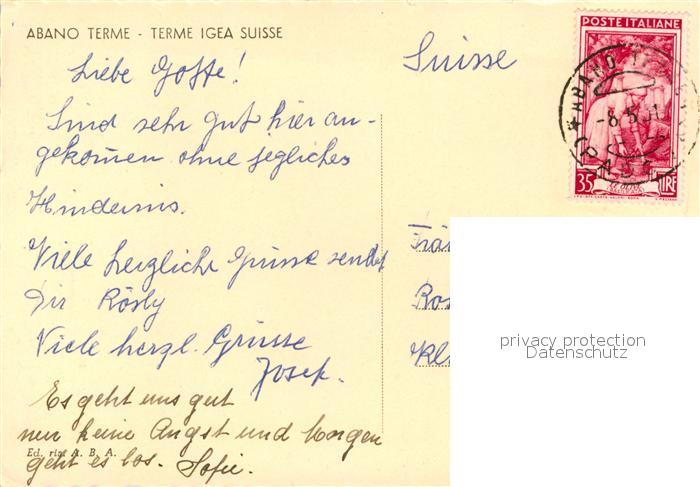 ABANO TERME - TERME IGEA SUISSE
Liebe Gotte!
Sind sehr gut hier an-
gekommen ohne jegliches
Hindernis.
Viele herzliche Grüsse sendet
Dir Rösly
Viele herzl. Grüsse
Josef.
Es geht uns gut
nur keine Angst und Morgen
geht es los. Sofie.
Ed. ris. A. B. A.
Suisse
POSTE ITALIANE
ABANO
-8.5.51
PADOVA
35 LIRE
privacy protection
Datenschutz